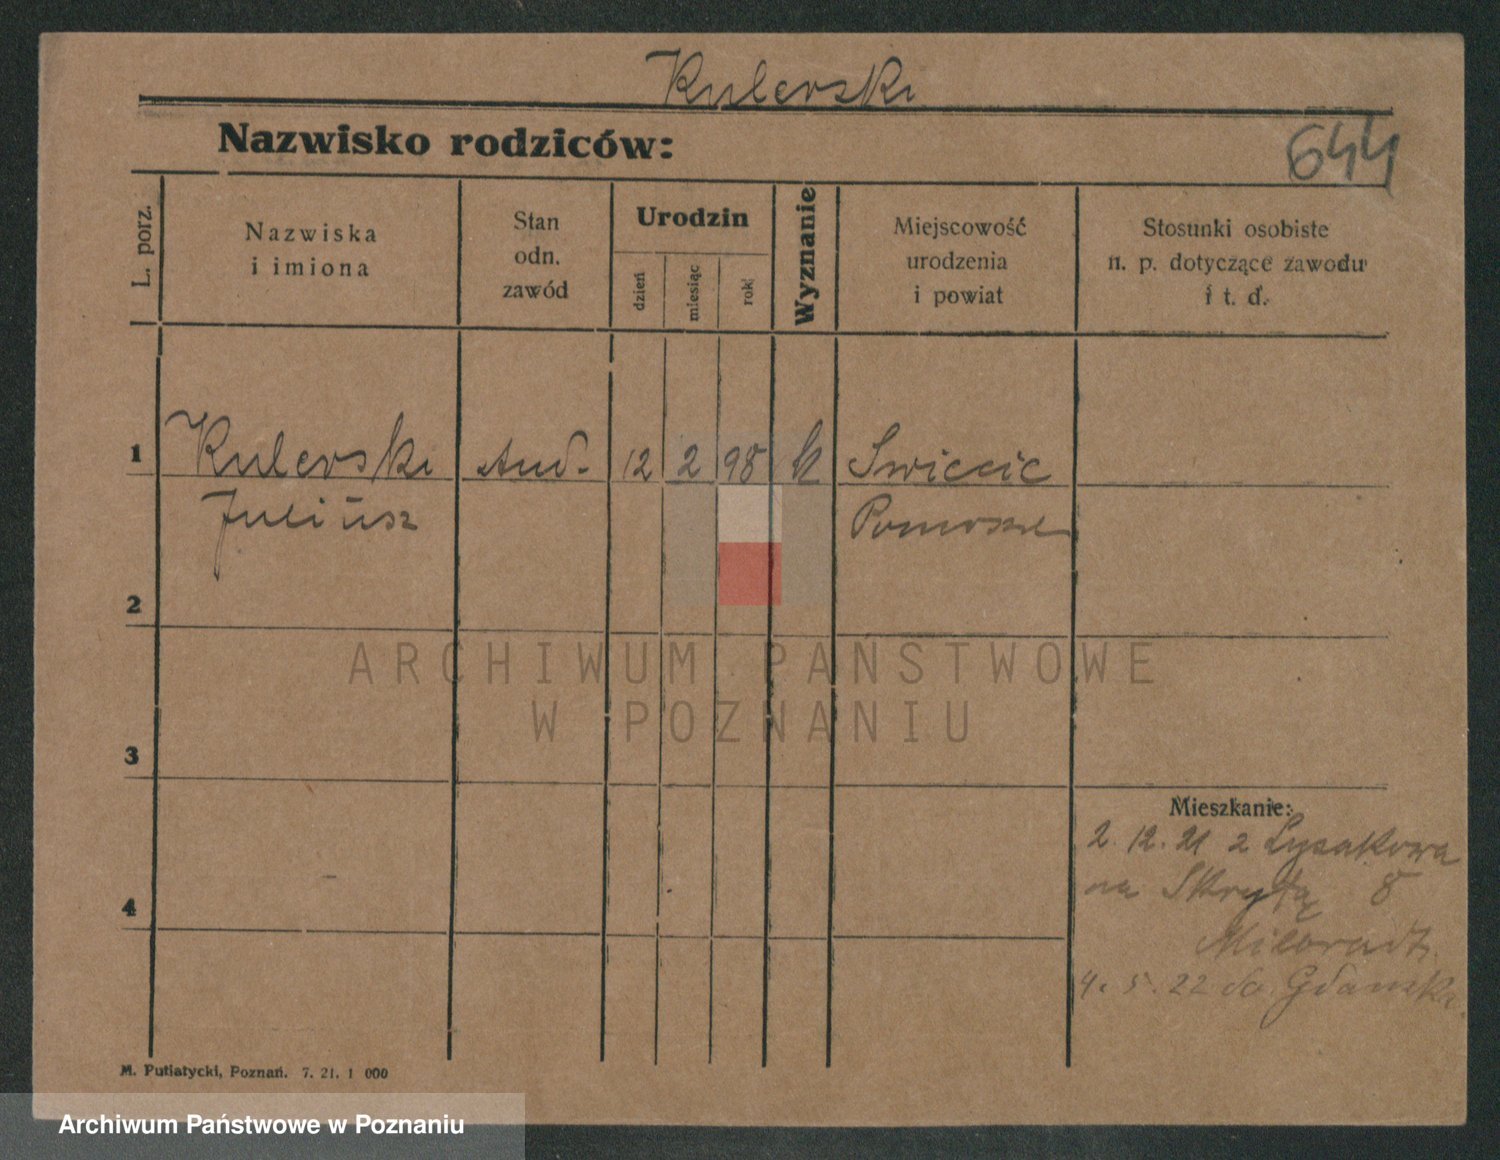 Kulerski
Nazwisko rodziców:
644
L. porz.
Nazwiska
i imiona
Stan
odn.
zawód
Urodzin
dzień
miesiąc
rok
Wyznanie
Miejscowość
urodzenia
i powiat
Stosunki osobiste
n. p. dotyczące zawodu
i t. d.
1
Kulerski
Juliusz
stud.
12 2 98
k
Swiecie
Pomorze
2
3
4
ARCHIWUM PAŃSTWOWE
W POZNANIU
Mieszkanie:
2. 12. 21 z Łysakowa
na Skrytą 8
4. 5. 22 do Gdańska.
M. Putiatycki, Poznań. 7. 21. 1 000
Archiwum Państwowe w Poznaniu